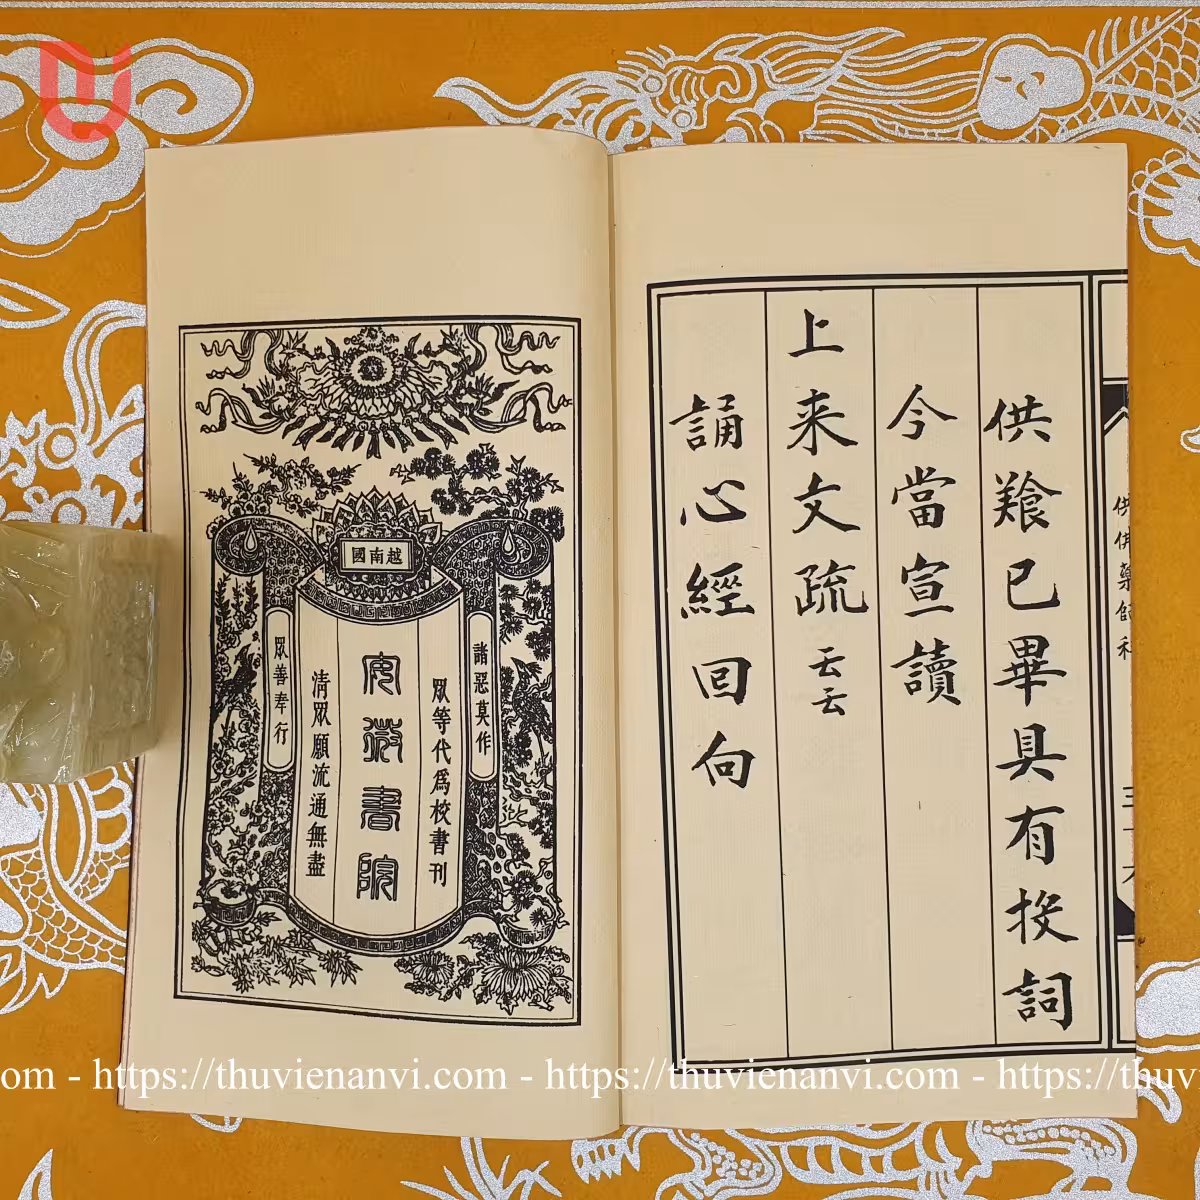 供佛藥師科
供 已畢具有投詞
今當宣讀
上来文疏云云
誦心經回向
越南國
諸惡莫作
眾等代爲校書刊
安微書院
清眾願流通無盡
眾善奉行
.com - https://thuvienanvi.com - https://thuvienanvi.com - https://thuv